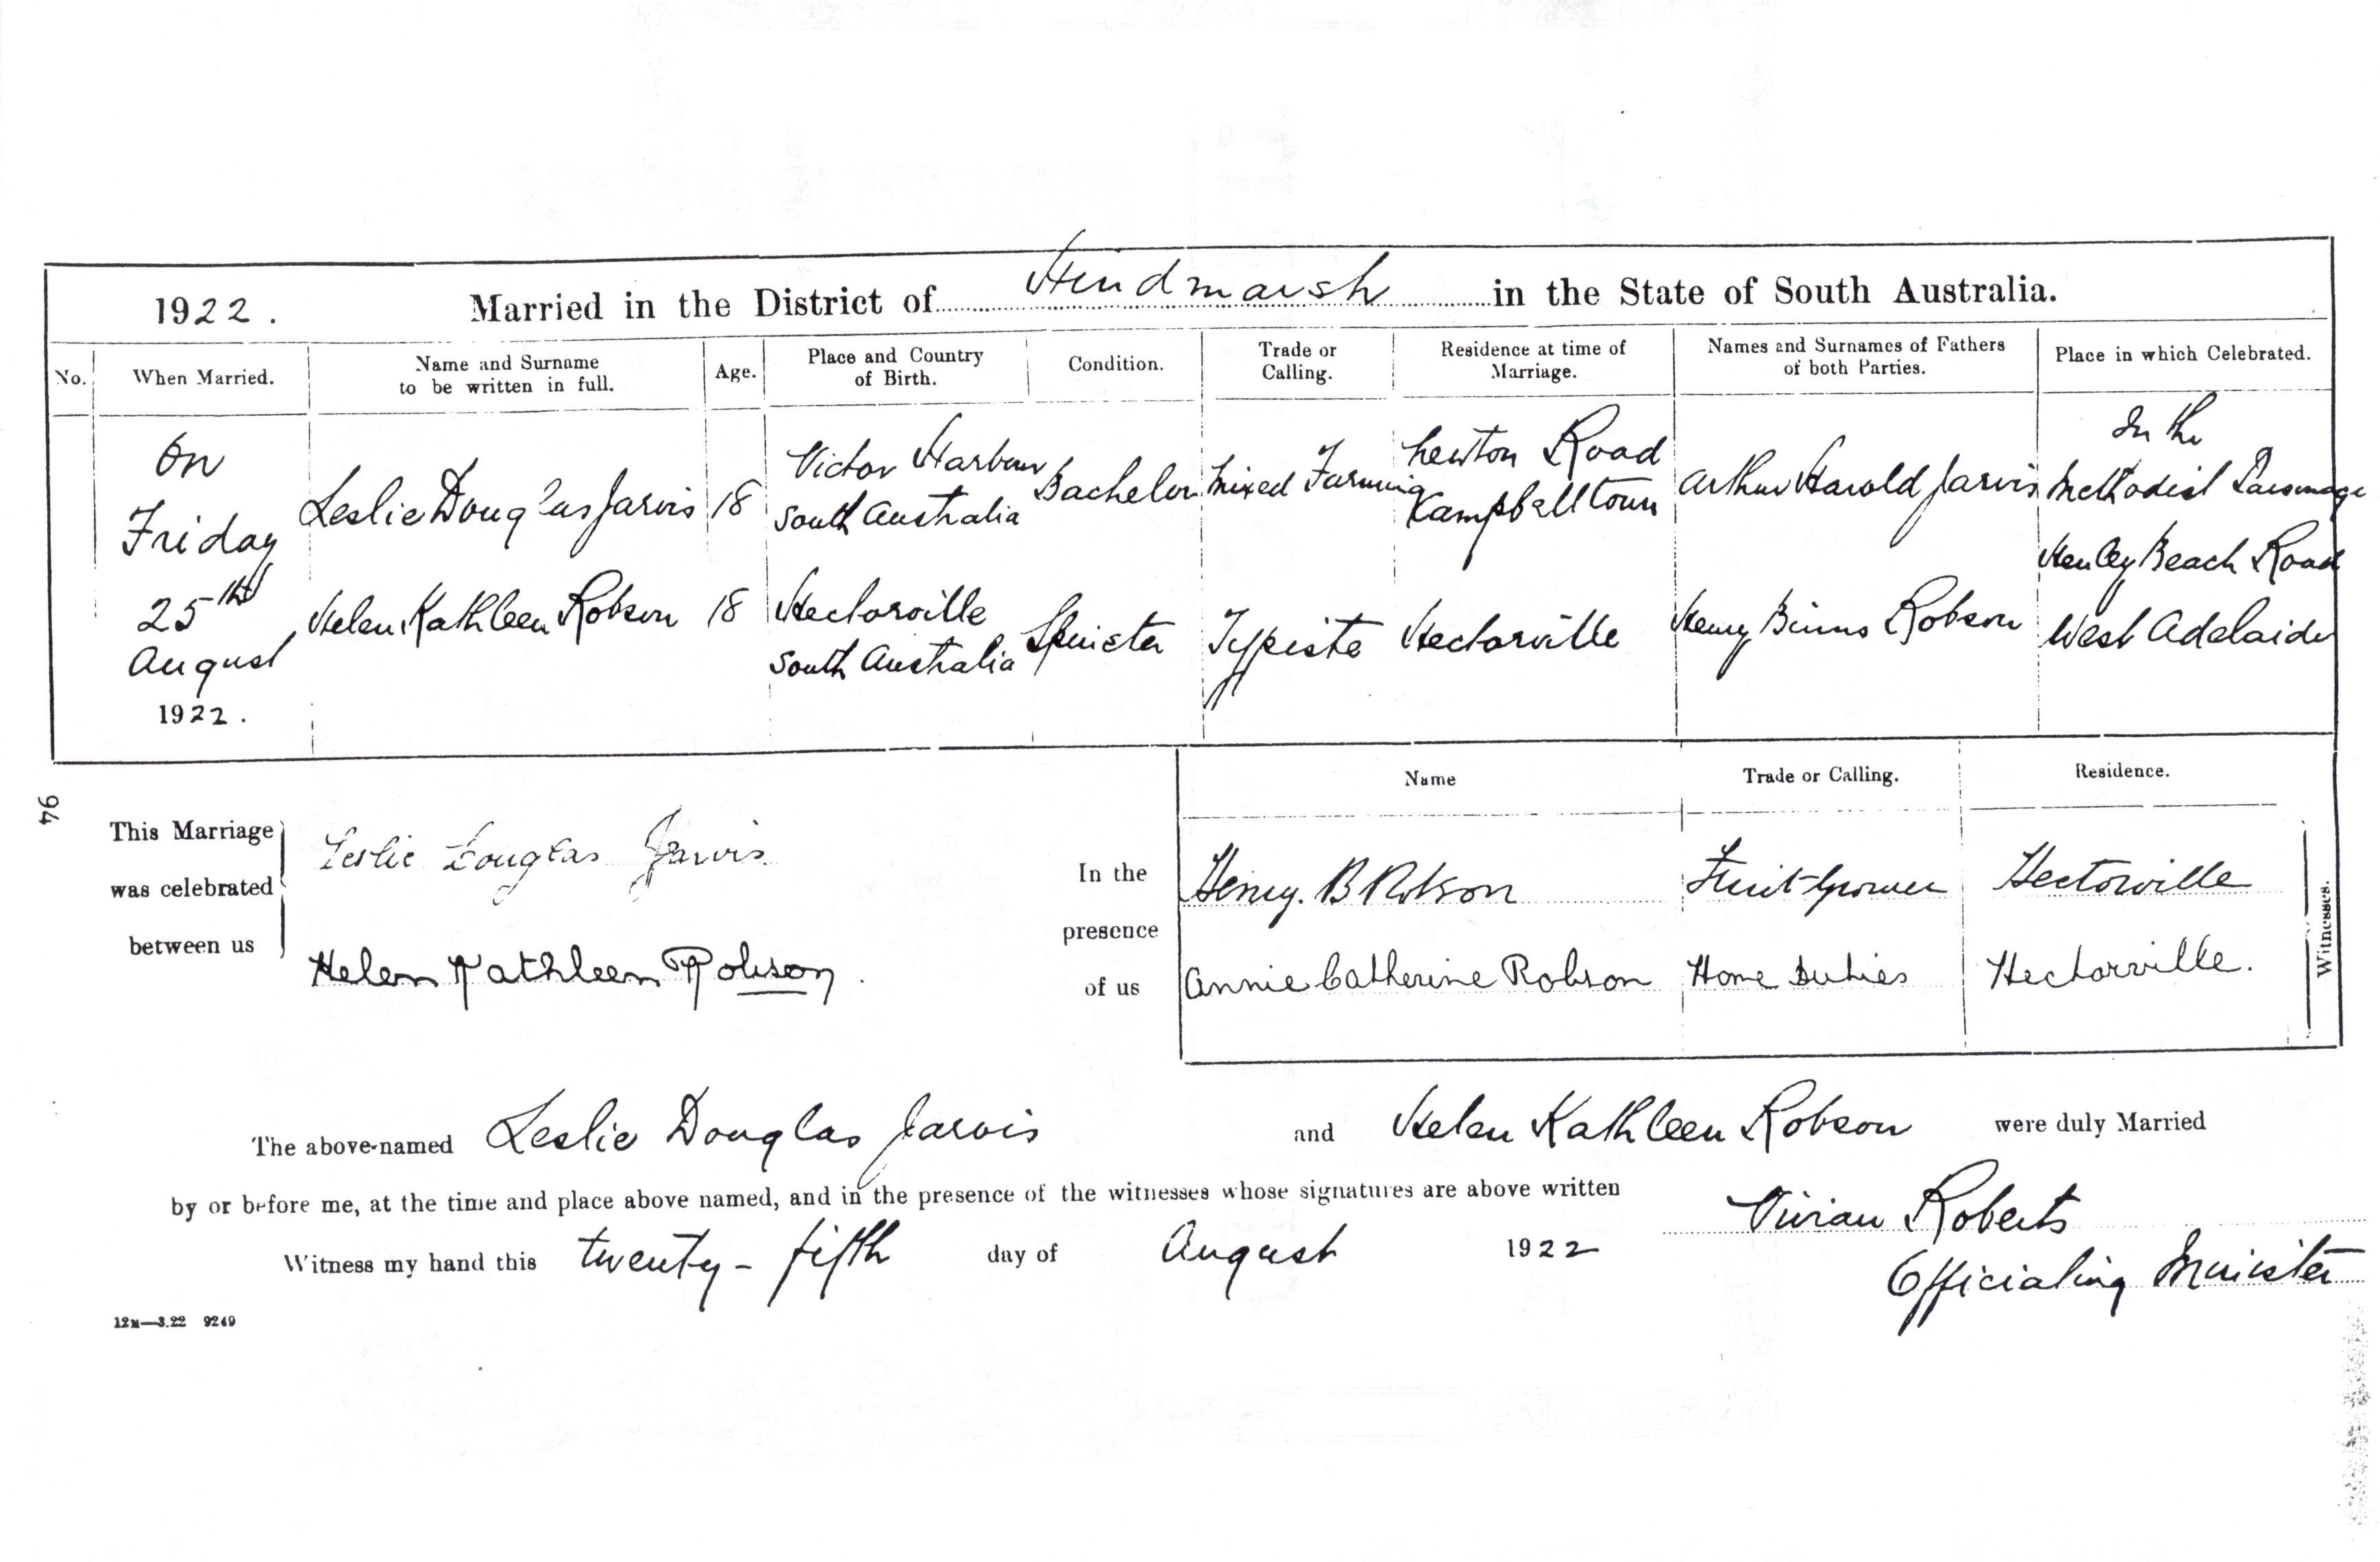 1922. Married in the District of Hindmarsh in the State of South Australia.
No. When Married. Name and Surname to be written in full. Age. Place and Country of Birth. Condition. Trade or Calling. Residence at time of Marriage. Names and Surnames of Fathers of both Parties. Place in which Celebrated.
On
Friday
25th
August
1922.
Leslie Douglas Jarvis 18
Victor Harbour
South Australia
Bachelor
Mixed Farming
Newton Road
Campbelltown
Arthur Harold Jarvis
In the
Methodist Parsonage
Henley Beach Road
West Adelaide
Helen Kathleen Robson 18
Hectorville
South Australia
Spinster
Typiste
Hectorville
Henry Binns Robson
94
This Marriage
was celebrated
between us
Leslie Douglas Jarvis
Helen Kathleen Robson.
In the
presence
of us
Name Trade or Calling. Residence.
Henry. B Robson Fruit-Grower Hectorville
Annie Catherine Robson Home Duties Hectorville.
Witnesses.
The above-named Leslie Douglas Jarvis and Helen Kathleen Robson were duly Married
by or before me, at the time and place above named, and in the presence of the witnesses whose signatures are above written
Vivian Roberts
Witness my hand this twenty-fifth day of August 1922
Officiating Minister
12M—3.22 9249